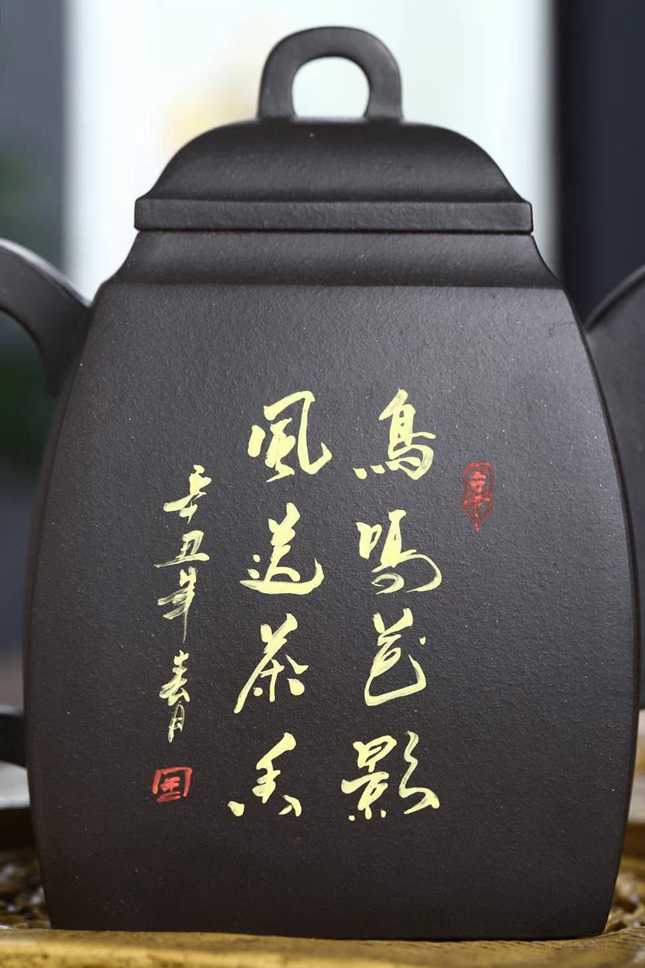 鳥鳴花影
風送茶香
辛丑年春月